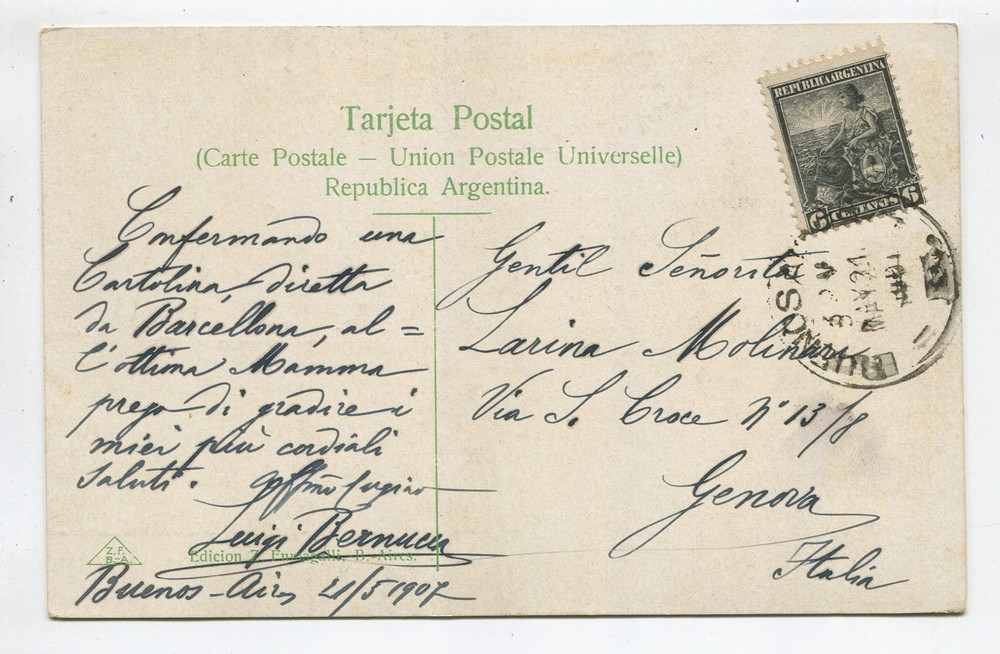 Tarjeta Postal
(Carte Postale — Union Postale Universelle)
Republica Argentina.
Confermando una
Cartolina, diretta
da Barcellona, al=
l'ottima Mamma
prego di gradire i
miei più cordiali
saluti.
Luigi Bernucci
Buenos-Aires 21/5 1907
Z.F.
B.-A.
Edicion Z. Fumagalli, B.-Aires.
REPUBLICA ARGENTINA
6 CENTAVOS 6
BUENOS AI
MAY 21
Gentil Señorita
Larina Molinari
Via S. Croce N° 13/8
Genova
Italia